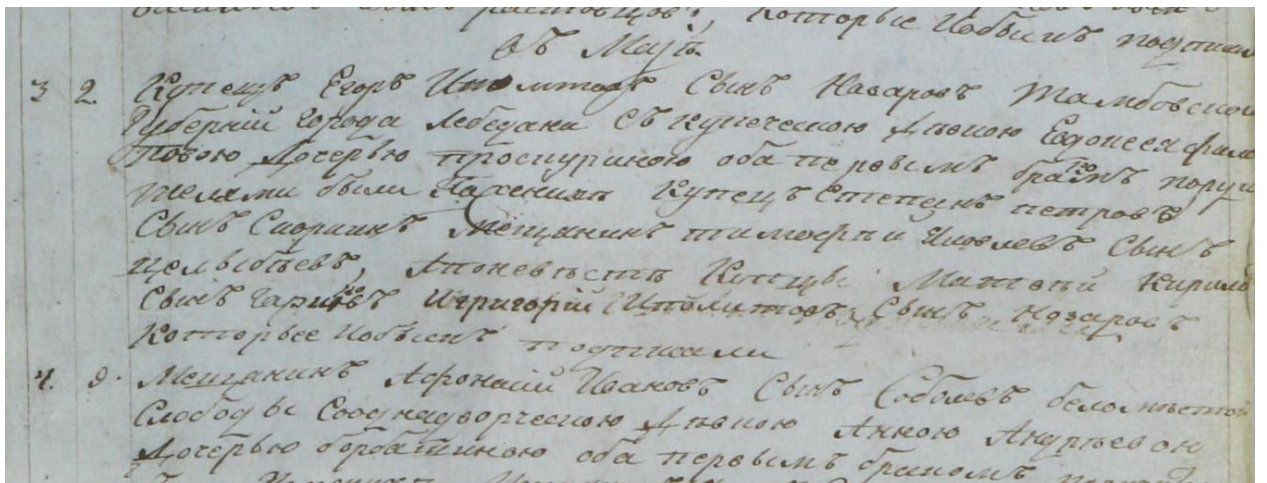 которые и обыскъ подписали
Въ Маjѣ
3 2. Купецъ Егоръ Иполитовъ Сынъ Назаровъ Тамбовской
Губернiи города Лебедяни съ купеческою дѣвкою Евдокеея фили
повою дочерью проскуриною оба первымъ бракомъ поручи
телями были По женихѣ Купецъ Степанъ петровъ
Сынъ мещанинъ тимоерьи Яковлевъ Сынъ
Апоневѣсте Купцы Матвей Кирило
Сынъ Игригорiй Иполитовъ Сынъ нозаровъ
Которые иобыскъ подписали
4. 9. Мещанинъ Афонасiй Ивановъ Сынъ Соболевъ беломѣстной
Слободы Сооднадворческою дѣвкою Анною Андрѣевою
дочерью оба первымъ бракомъ